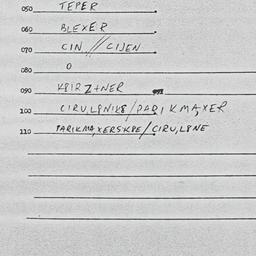 050 TEPER
060 BLEXER
070 CIN // CIJEN
080 O
090 K8IRZTNER
100 CIRU,L8NIK8/PARI KMA,XER
110 PARIKMA,XERSK8E/CIRU,L8NE